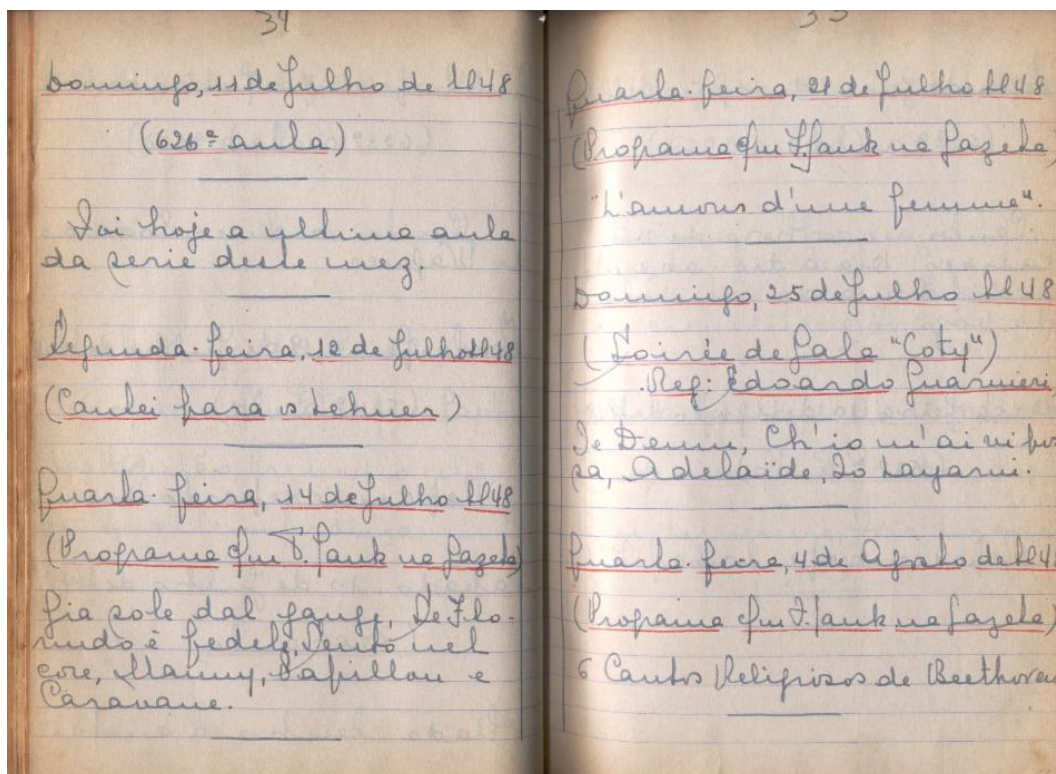 34
Domingo, 11 de Julho de 1948
(626ª aula)
Foi hoje a ultima aula
da serie deste mez.
Segunda-feira, 12 de Julho 1948
(Cantei para o Lehner)
Quarta-feira, 14 de Julho 1948
(Programa c/ Fr. Jank na Gazeta)
Gia sole dal gange, Se Flo-
rindo è fedele, Sento nel
core, Mammy, Papillon e
Caravane.
35
Quarta-feira, 21 de Julho 1948
(Programa c/ Fr. Jank na Gazeta)
"L'amour d'une femme".
Domingo, 25 de Julho 1948
(Soirée de Gala "Coty")
Reg: Edoardo Guarnieri
Te Deum, Ch'io m'ai vi pos
sa, Adelaïde, Io
Quarta-feira, 4 de Agosto de 194
(Programa c/ Fr. Jank na Gazeta)
6 Cantos Religiosos de Beethoven